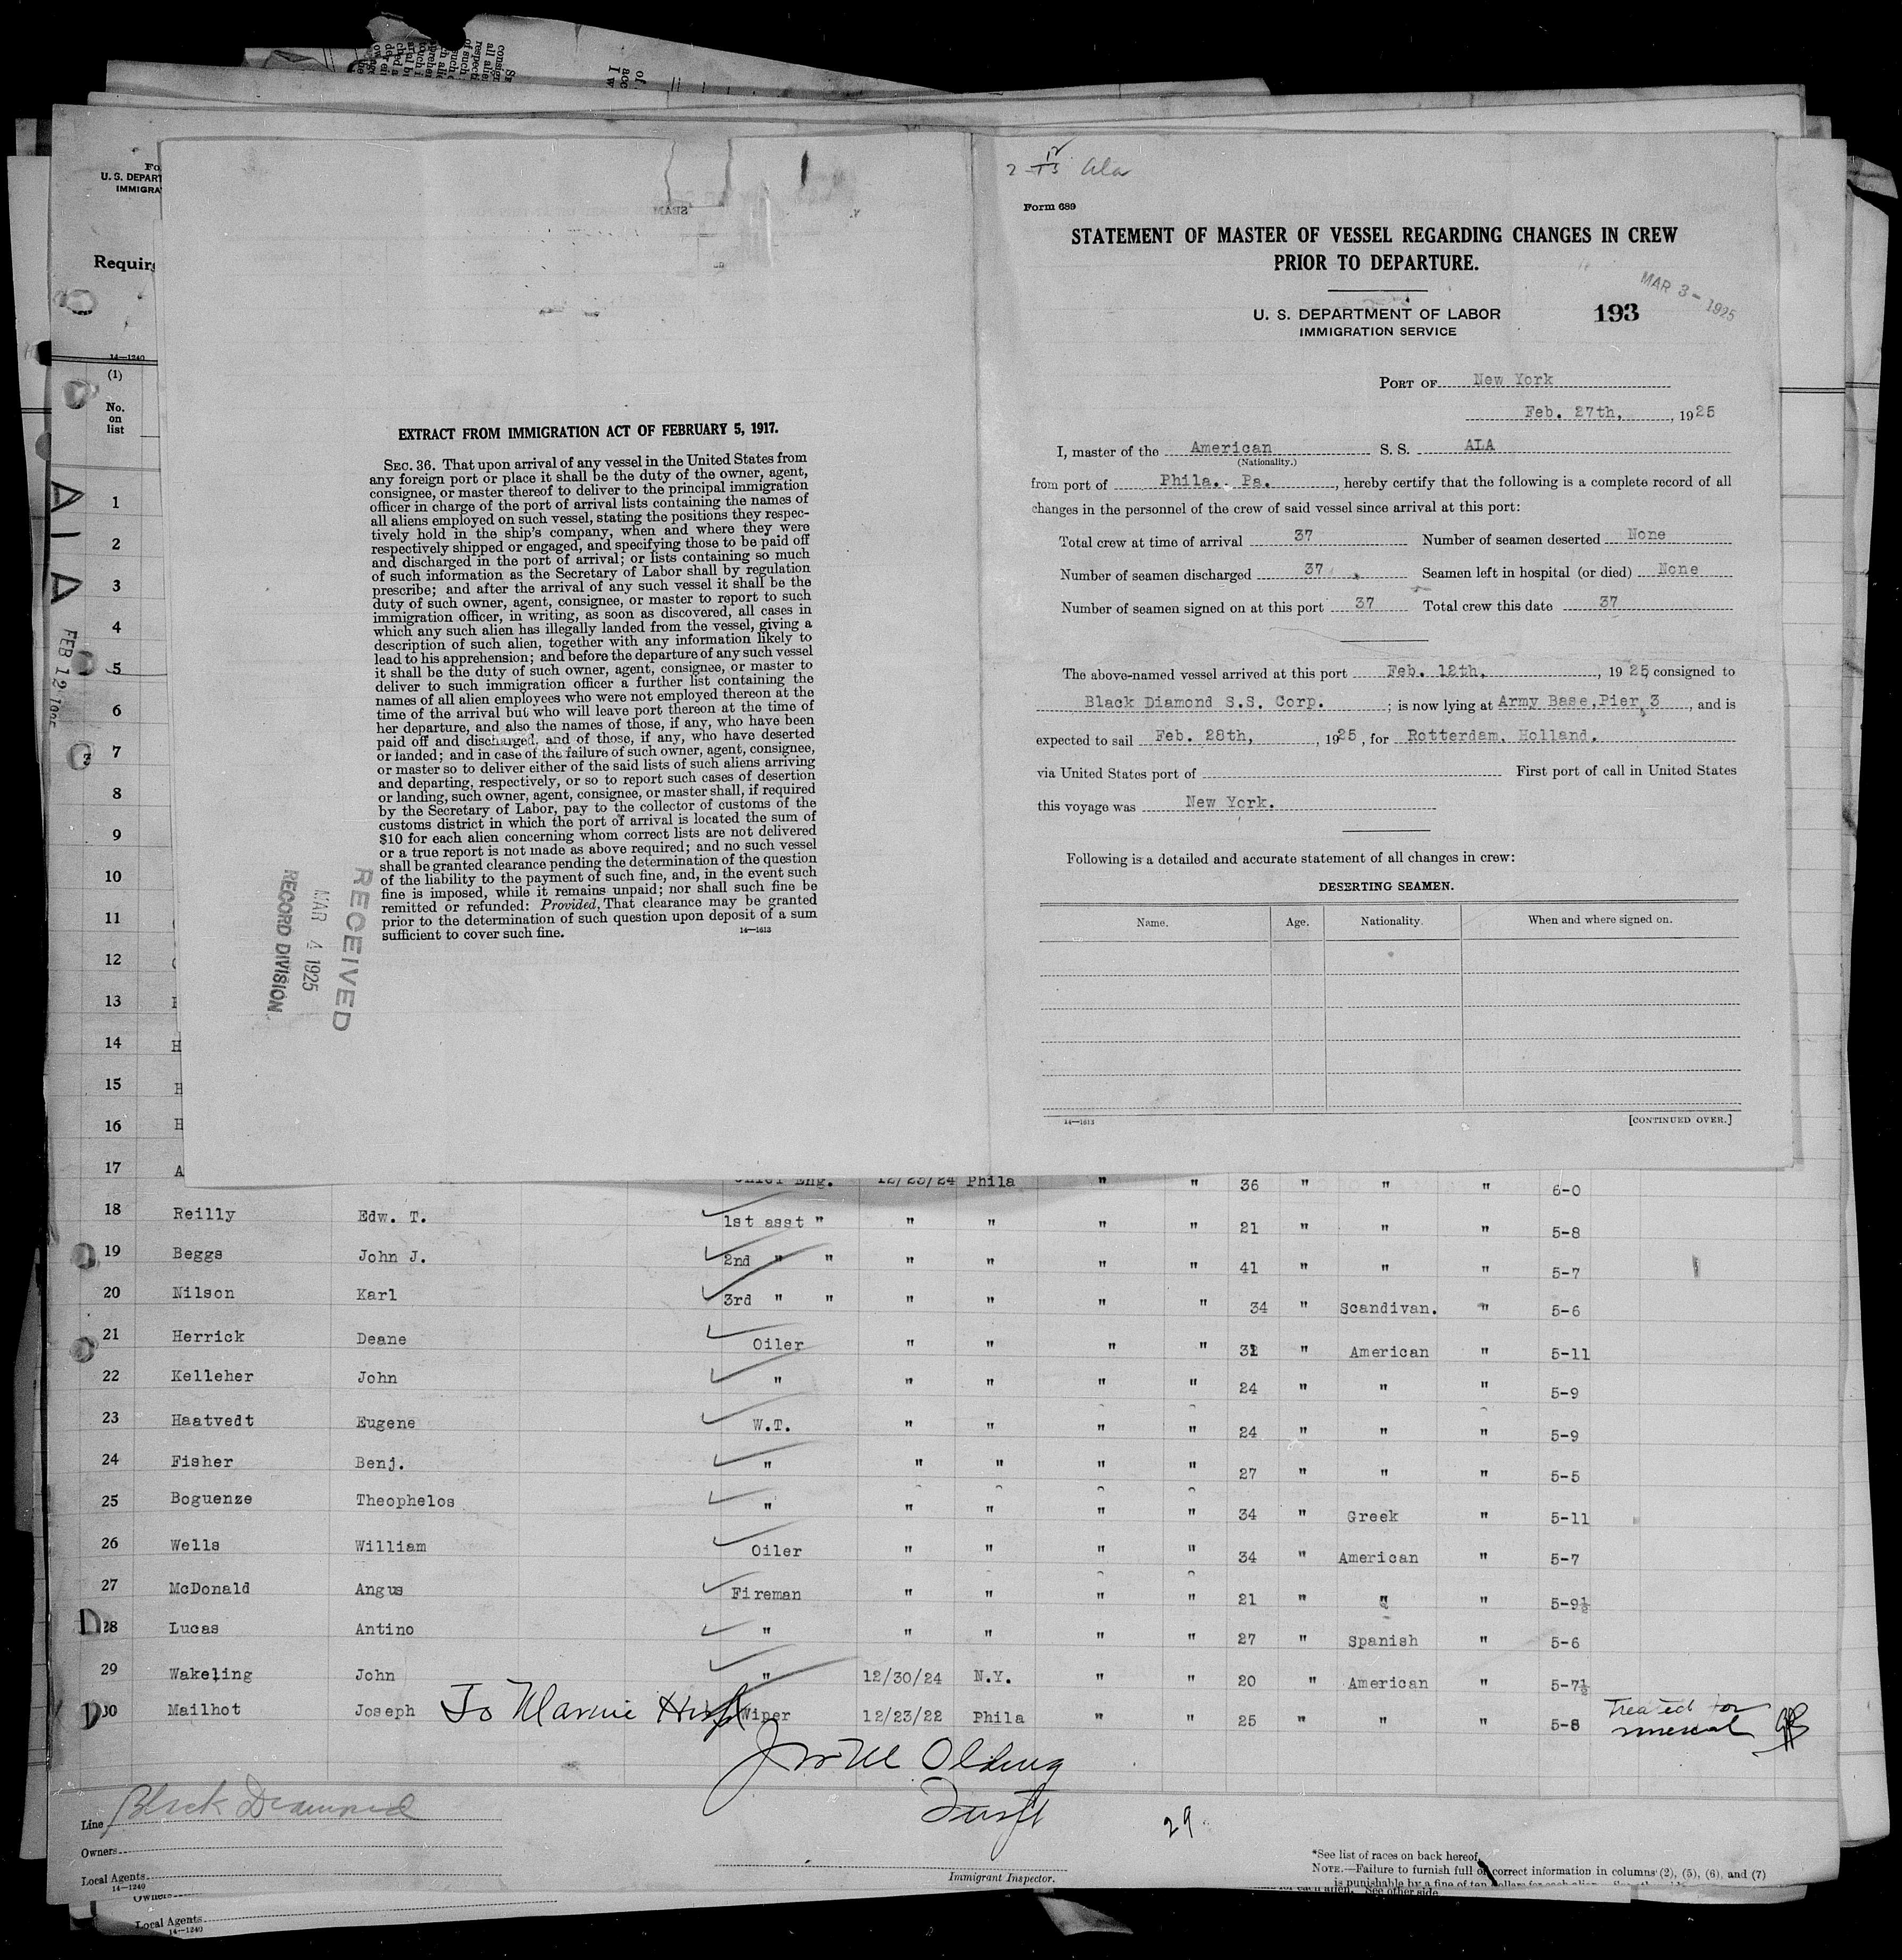 consign
all alie
respecti
of such
such
Sr
of
acc
I w
Fo
U. S. DEPART
IMMIGRA
Requir
14—1240
(1)
No.
on
list
ALA
FEB 12 1925
1
2
3
4
5
6
7
8
9
10
11
12
13
14 H
15
16 H
17 A
EXTRACT FROM IMMIGRATION ACT OF FEBRUARY 5, 1917.
SEC. 36. That upon arrival of any vessel in the United States from
any foreign port or place it shall be the duty of the owner, agent,
consignee, or master thereof to deliver to the principal immigration
officer in charge of the port of arrival lists containing the names of
all aliens employed on such vessel, stating the positions they respec-
tively hold in the ship's company, when and where they were
respectively shipped or engaged, and specifying those to be paid off
and discharged in the port of arrival; or lists containing so much
of such information as the Secretary of Labor shall by regulation
prescribe; and after the arrival of any such vessel it shall be the
duty of such owner, agent, consignee, or master to report to such
immigration officer, in writing, as soon as discovered, all cases in
which any such alien has illegally landed from the vessel, giving a
description of such alien, together with any information likely to
lead to his apprehension; and before the departure of any such vessel
it shall be the duty of such owner, agent, consignee, or master to
deliver to such immigration officer a further list containing the
names of all alien employees who were not employed thereon at the
time of the arrival but who will leave port thereon at the time of
her departure, and also the names of those, if any, who have been
paid off and discharged, and of those, if any, who have deserted
or landed; and in case of the failure of such owner, agent, consignee,
or master so to deliver either of the said lists of such aliens arriving
and departing, respectively, or so to report such cases of desertion
or landing, such owner, agent, consignee, or master shall, if required
by the Secretary of Labor, pay to the collector of customs of the
customs district in which the port of arrival is located the sum of
$10 for each alien concerning whom correct lists are not delivered
or a true report is not made as above required; and no such vessel
shall be granted clearance pending the determination of the question
of the liability to the payment of such fine, and, in the event such
fine is imposed, while it remains unpaid; nor shall such fine be
remitted or refunded: Provided, That clearance may be granted
prior to the determination of such question upon deposit of a sum
sufficient to cover such fine.
14—1613
RECEIVED
MAR 4 1925
RECORD DIVISION
2 12/13 Ala
Form 689
STATEMENT OF MASTER OF VESSEL REGARDING CHANGES IN CREW
PRIOR TO DEPARTURE.
MAR 3 - 1925
U. S. DEPARTMENT OF LABOR 193
IMMIGRATION SERVICE
PORT OF New York
Feb. 27th, , 1925
I, master of the American S. S. ALA
(Nationality.)
from port of Phila. Pa. , hereby certify that the following is a complete record of all
changes in the personnel of the crew of said vessel since arrival at this port:
Total crew at time of arrival 37 Number of seamen deserted None
Number of seamen discharged 37 Seamen left in hospital (or died) None
Number of seamen signed on at this port 37 Total crew this date 37
The above-named vessel arrived at this port Feb. 12th, , 1925, consigned to
Black Diamond S.S. Corp. ; is now lying at Army Base.Pier 3 , and is
expected to sail Feb. 28th, , 1925 , for Rotterdam, Holland.
via United States port of First port of call in United States
this voyage was New York.
Following is a detailed and accurate statement of all changes in crew:
DESERTING SEAMEN.
Name. Age. Nationality. When and where signed on.
14—1613 [CONTINUED OVER.]
Chief Eng. 12/23/24 Phila " " 36 " " " 6-0
18 Reilly Edw. T. 1st asst " " " " " 21 " " " 5-8
19 Beggs John J. 2nd " " " " " " 41 " " " 5-7
20 Nilson Karl 3rd " " " " " " 34 " Scandivan. " 5-6
21 Herrick Deane Oiler " " " " 32 " American " 5-11
22 Kelleher John " " " " " 24 " " " 5-9
23 Haatvedt Eugene W.T. " " " " 24 " " " 5-9
24 Fisher Benj. " " " " " 27 " " " 5-5
25 Boguenze Theophelos " " " " " 34 " Greek " 5-11
26 Wells William Oiler " " " " 34 " American " 5-7
27 McDonald Angus Fireman " " " " 21 " " " 5-9½
28 Lucas Antino " " " " " 27 " Spanish " 5-6
29 Wakeling John " 12/30/24 N.Y. " " 20 " American " 5-7½
30 Mailhot Joseph To Marine Hosp Wiper 12/23/22 Phila " " 25 " " " 5-8 Treated for
D
D
Line Black Diamond
29
Owners
Local Agents
14—1240
Immigrant Inspector.
*See list of races on back hereof.
NOTE.—Failure to furnish full or correct information in columns (2), (5), (6), and (7)
is punishable by a fine of ten dollars for each alien. See other side
Owners
Local Agents
14—1240